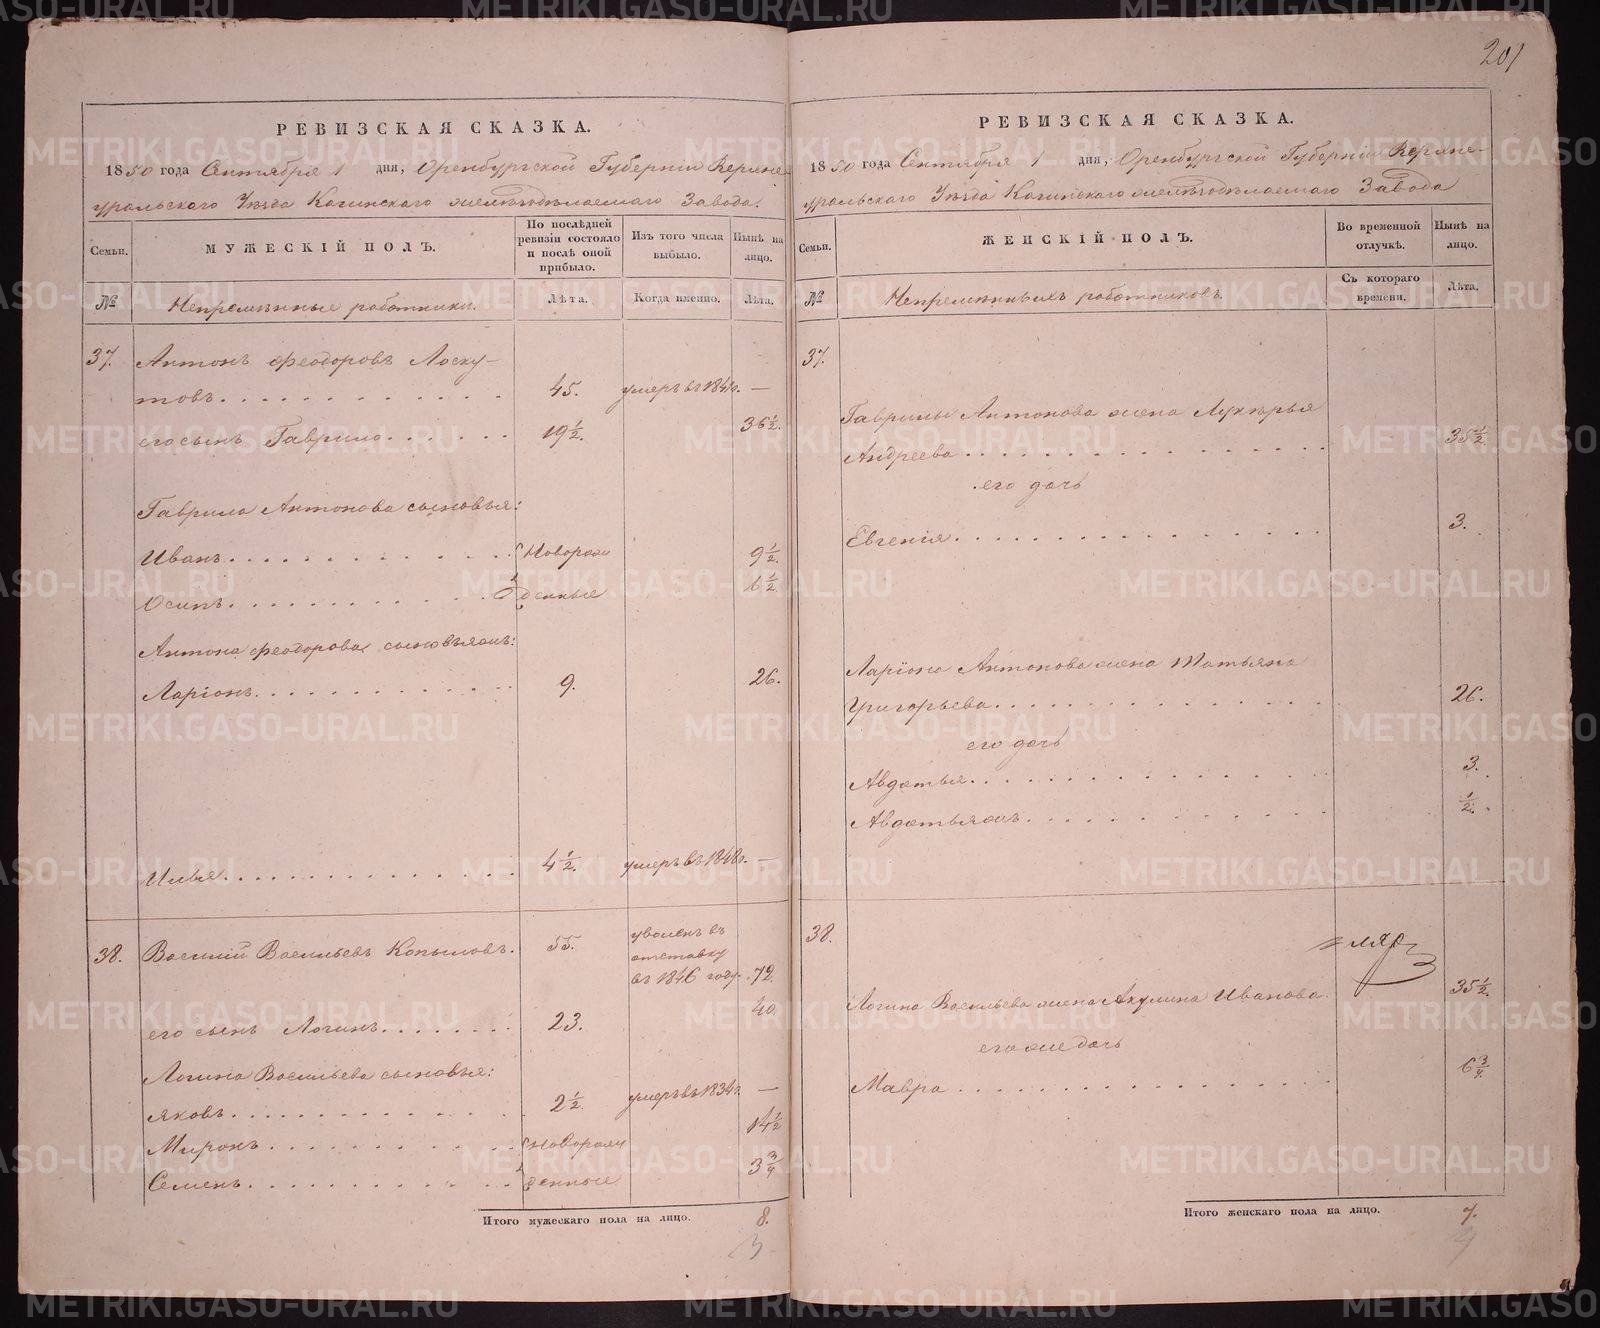 201
РЕВИЗСКАЯ СКАЗКА.
1850 года Сентября 1 дня, Оренбургской Губернiи Верхне-
уральскаго Уѣзда Кагинскаго желѣзодѣлаемаго Завода.
Семьи.
МУЖЕСКIЙ ПОЛЪ.
По послѣдней
ревизiи состояло
и послѣ оной
прибыло.
Изъ того числа
выбыло.
Нынѣ на
лицо.
№
Непремѣнные работники.
Лѣта.
Когда именно.
Лѣта.
37. Антонъ Феодоровъ Лоску-
товъ. 45. умеръ въ —
его сынъ Гаврило. 19½. 36½.
Гаврила Антонова сыновья:
Иванъ. Новорож 9½.
Осипъ. денные 6½.
Антона Феодорова сыновья:
Ларiонъ. 9. 26.
Илья. 4½. умеръ въ 1848г. —
38. Василiй Васильевъ Копыловъ. 55. уволенъ въ
отставку
въ 1846 году. 72.
его сынъ Логинъ. 23. 40.
Логина Васильева сыновья:
Яковъ. 2½. умеръ въ 1834г. —
Миронъ. Новорож 14½
Семенъ. денные 3¾
Итого мужескаго пола на лицо. 8.
3
РЕВИЗСКАЯ СКАЗКА.
1850 года Сентября 1 дня, Оренбургской Губернiи Верхне-
уральскаго Уѣзда Кагинскаго желѣзодѣлаемаго Завода
Семьи.
ЖЕНСКIЙ ПОЛЪ.
Во временной
отлучкѣ.
Нынѣ на
лицо.
№
Непремѣнныхъ работниковъ.
Съ котораго
времени.
Лѣта.
37.
Гаврилы Антонова жена Лукѣрья
Андреева. 35½.
его дочь
Евгенiя. 3.
Ларiона Антонова жена Татьяна
Григорьева. 26.
его дочь
Авдотья. 3.
½.
38.
Логина Васильева жена Акулина Иванова. 35½.
его же дочь
Мавра. 6¾.
Итого женскаго пола на лицо. 7.
METRIKI.GASO-URAL.RU